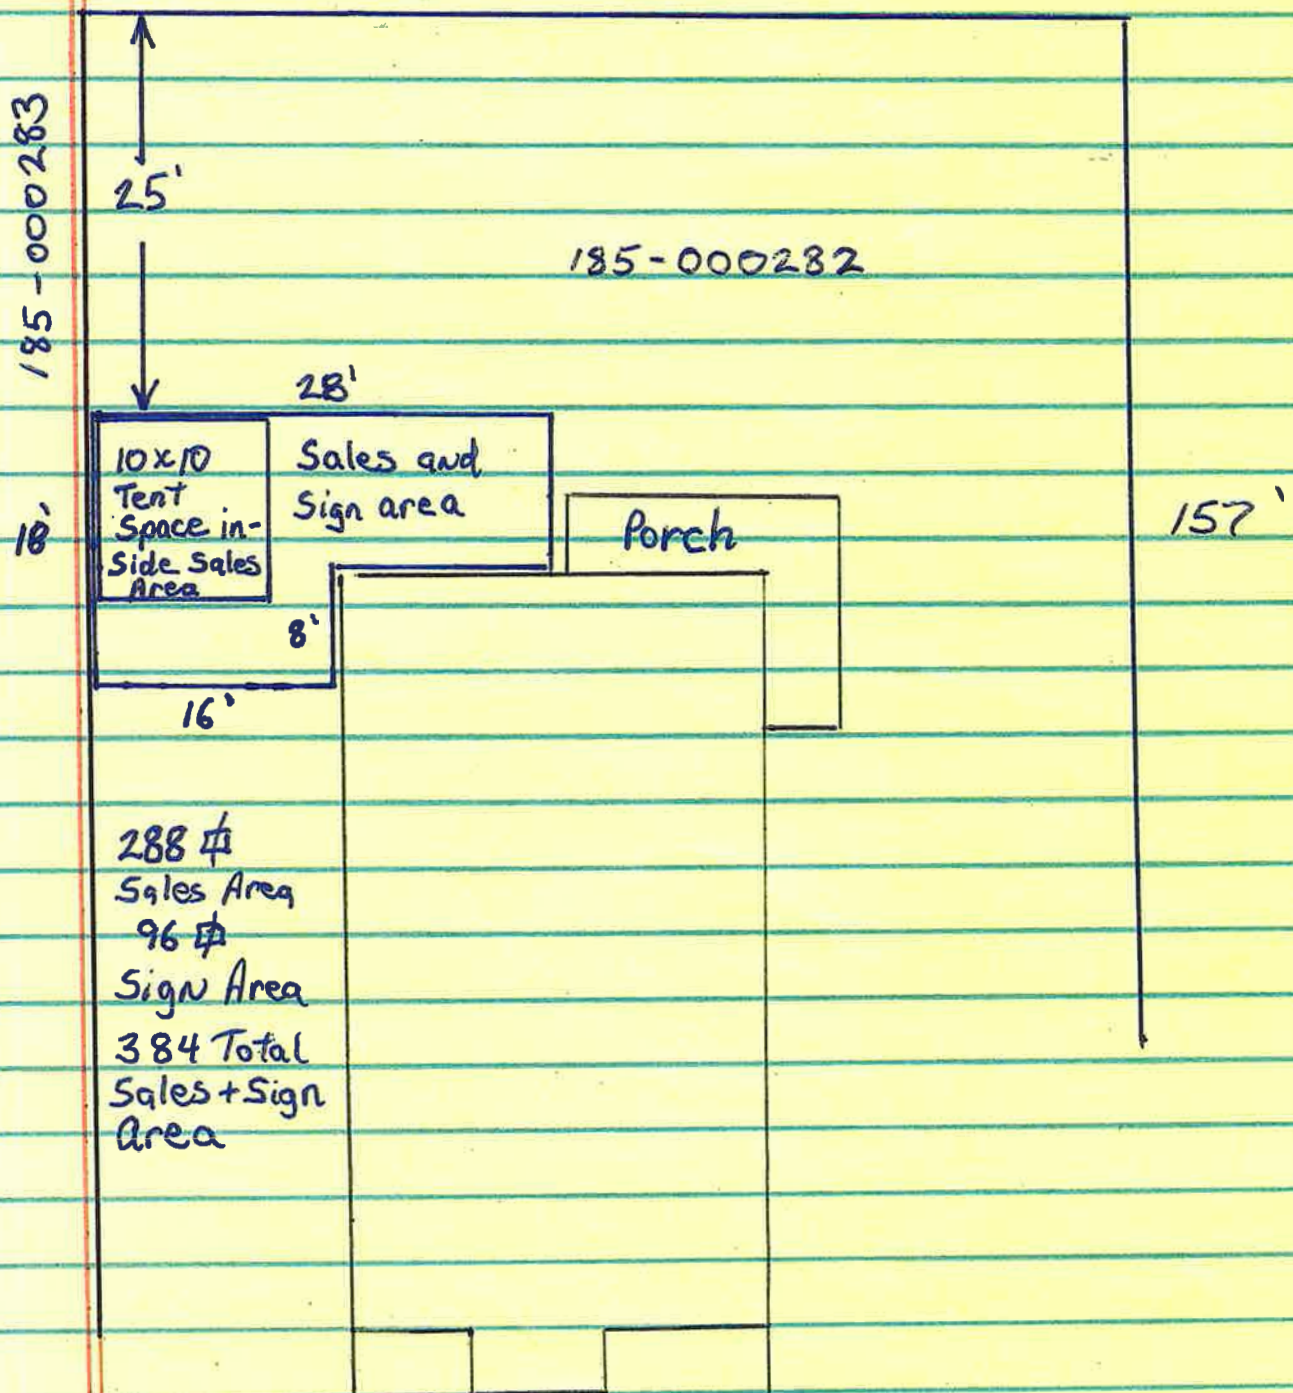 185-000283
25'
185-000282
28'
10x10
Tent
Space in-
Side Sales
Area
Sales and
Sign area
18'
Porch
157'
8'
16'
288 ⏍
Sales Area
96 ⏍
Sign Area
384 Total
Sales+Sign
Area